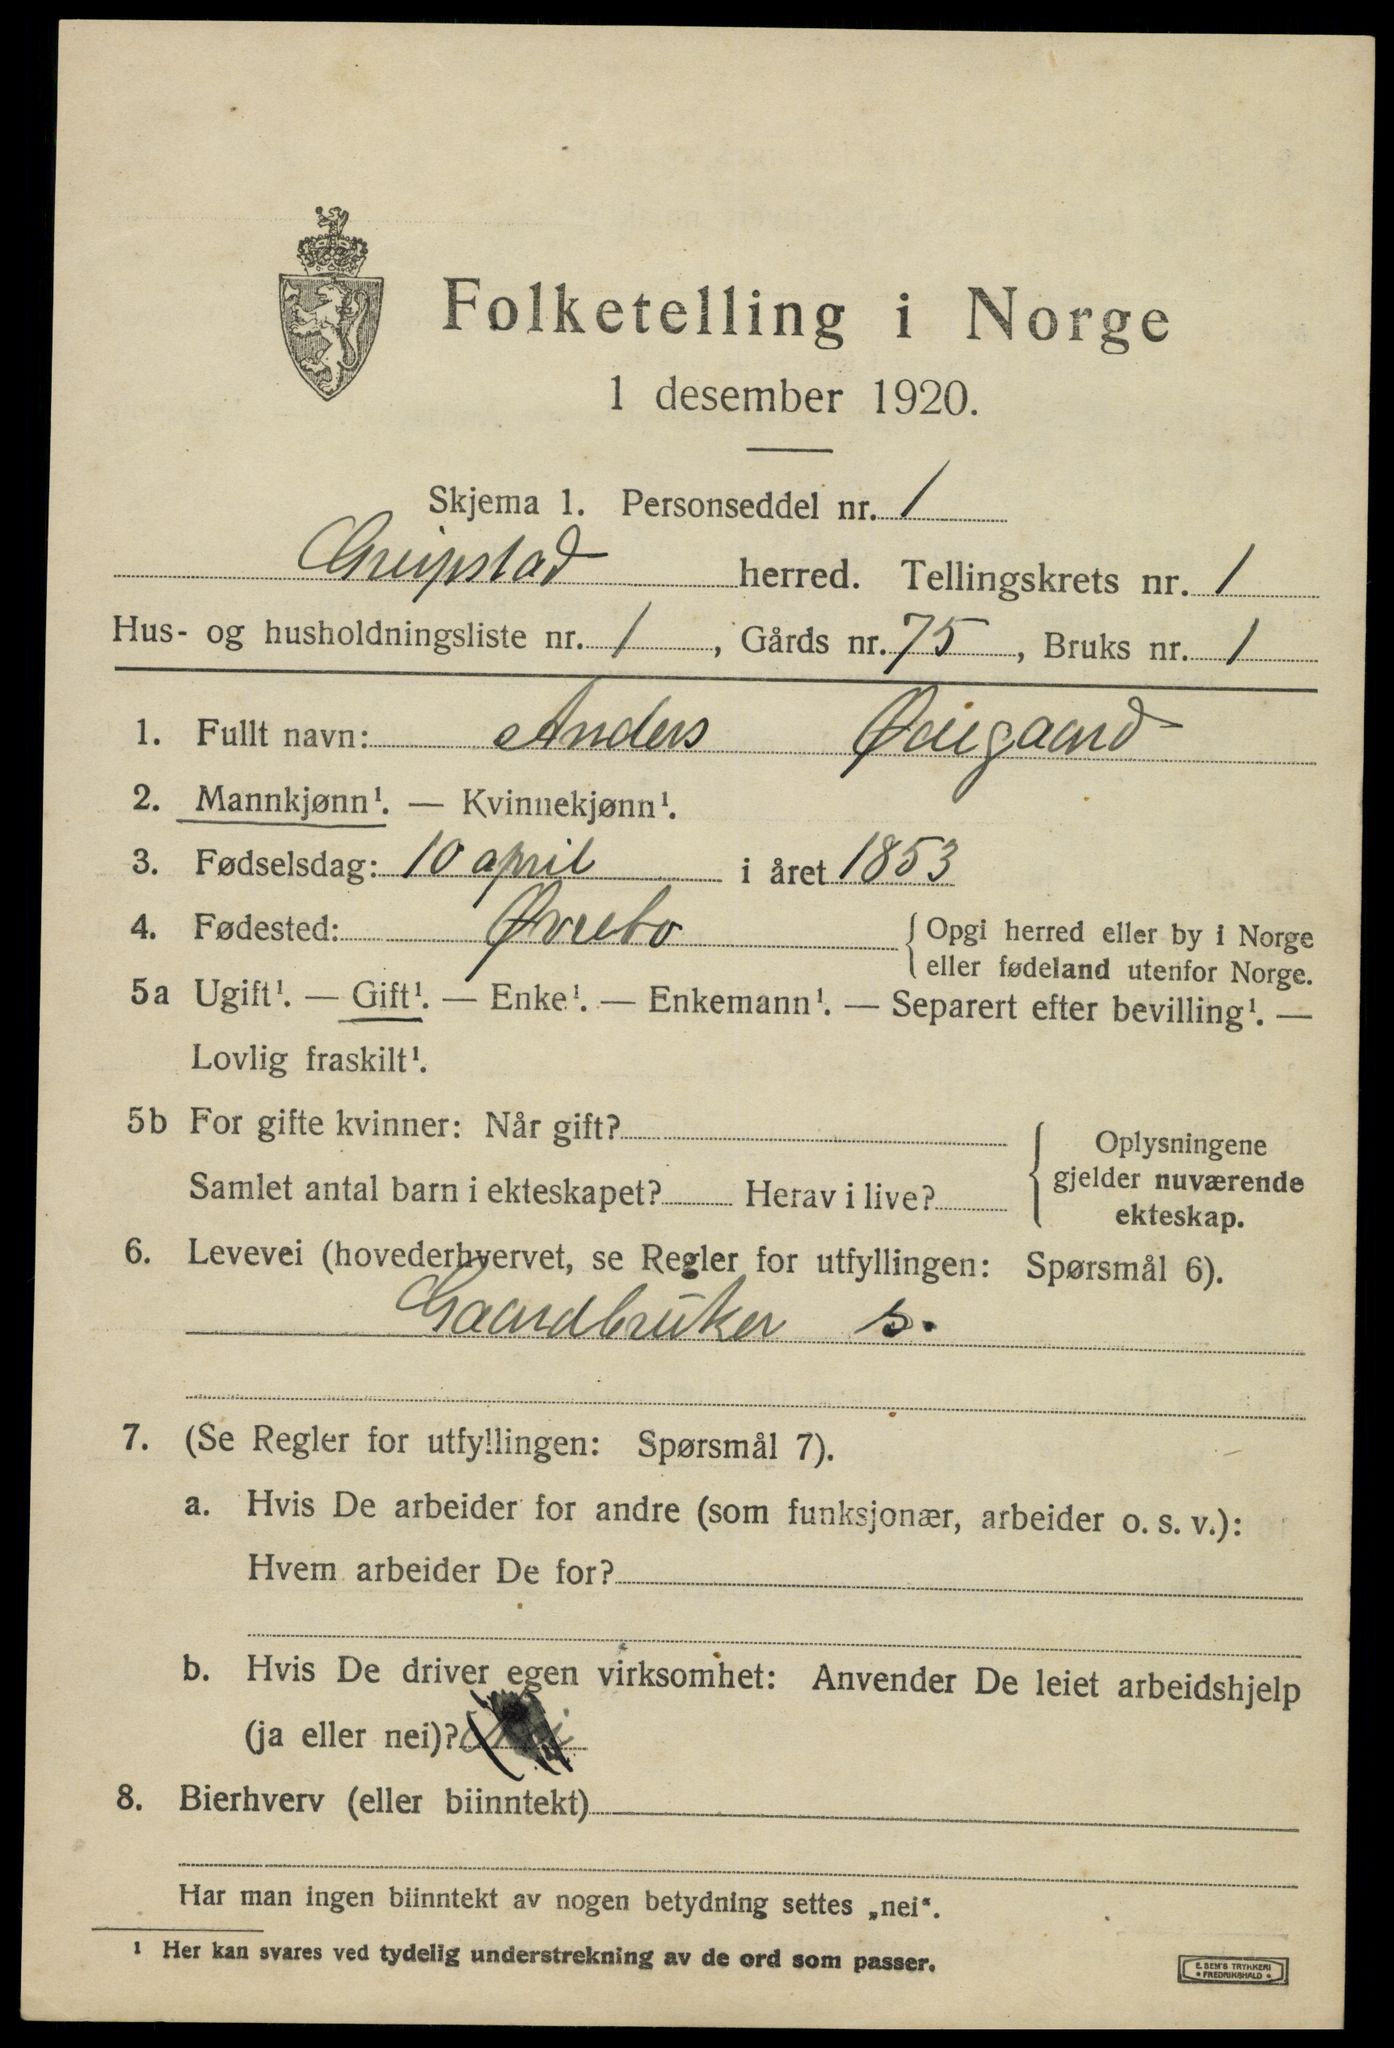 Folketelling i Norge
1 desember 1920.
Skjema 1. Personseddel nr. 1
Greipstad herred. Tellingskrets nr. 1
Hus- og husholdningsliste nr. 1, Gårds nr. 75, Bruks nr. 1
1. Fullt navn: Anders Ødegaard
2. Mannkjønn¹. — Kvinnekjønn¹.
3. Fødselsdag: 10 april i året 1853
4. Fødested: Øvrebo { Opgi herred eller by i Norge
eller fødeland utenfor Norge.
5a Ugift¹. — Gift¹. — Enke¹. — Enkemann¹. — Separert efter bevilling¹. —
Lovlig fraskilt¹.
5b For gifte kvinner: Når gift?
Samlet antal barn i ekteskapet? Herav i live?
Oplysningene
gjelder nuværende
ekteskap.
6. Levevei (hovederhvervet, se Regler for utfyllingen: Spørsmål 6).
Gaardbruker s.
7. (Se Regler for utfyllingen: Spørsmål 7).
a. Hvis De arbeider for andre (som funksjonær, arbeider o. s. v.):
Hvem arbeider De for?
b. Hvis De driver egen virksomhet: Anvender De leiet arbeidshjelp
(ja eller nei)?
8. Bierhverv (eller biinntekt)
Har man ingen biinntekt av nogen betydning settes „nei“.
¹ Her kan svares ved tydelig understrekning av de ord som passer.
E. SEM'S TRYKKERI
• FREDRIKSHALD •